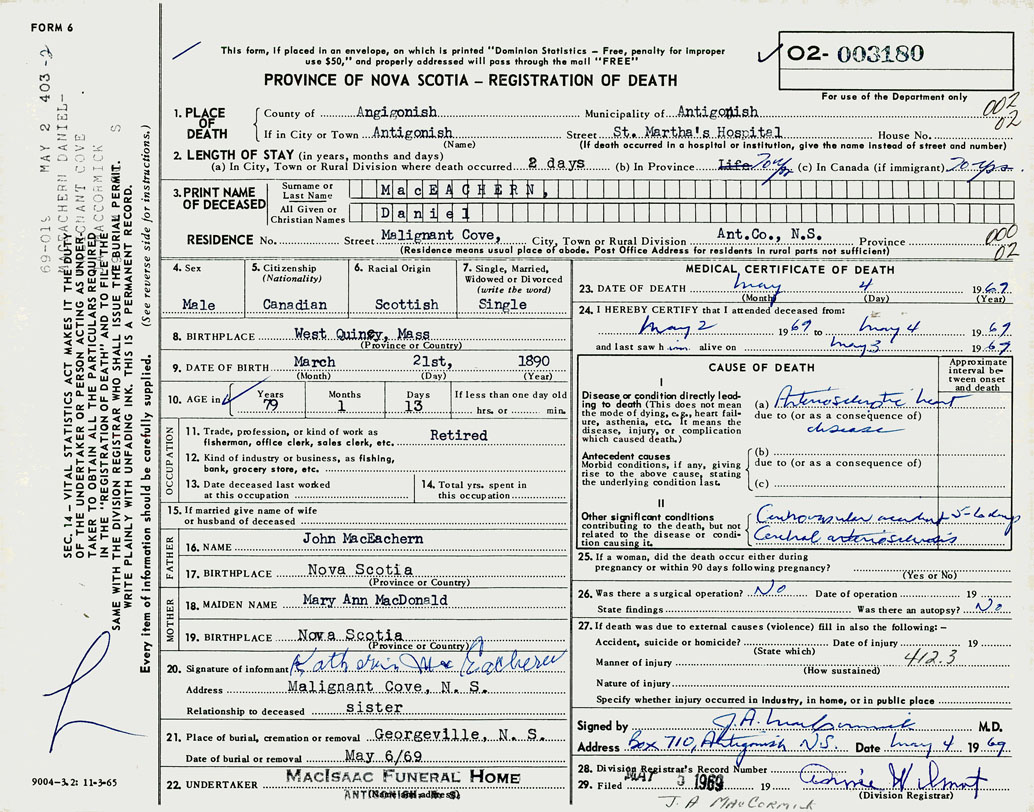 FORM 6
This form, if placed in an envelope, on which is printed "Dominion Statistics – Free, penalty for improper
use $50," and properly addressed will pass through the mail "FREE"
PROVINCE OF NOVA SCOTIA – REGISTRATION OF DEATH
02- 003180
For use of the Department only
002
02
1. PLACE OF DEATH
County of Angigonish Municipality of Antigonish
If in City or Town Antigonish Street St. Martha's Hospital House No.
(Name) (If death occurred in a hospital or institution, give the name instead of street and number)
2. LENGTH OF STAY (in years, months and days)
(a) In City, Town or Rural Division where death occurred 2 days (b) In Province Life 70 yrs (c) In Canada (if immigrant) 70 yrs.
3. PRINT NAME OF DECEASED
Surname or Last Name MacEACHERN,
All Given or Christian Names Daniel
RESIDENCE No. Street Malignant Cove, City, Town or Rural Division Ant.Co., N.S. Province
(Residence means usual place of abode. Post Office Address for residents in rural parts not sufficient)
000
02
4. Sex Male
5. Citizenship (Nationality) Canadian
6. Racial Origin Scottish
7. Single, Married, Widowed or Divorced (write the word) Single
8. BIRTHPLACE West Quincy, Mass
(Province or Country)
9. DATE OF BIRTH March 21st, 1890
(Month) (Day) (Year)
10. AGE in Years 79 Months 1 Days 13 If less than one day old hrs. or min.
OCCUPATION
11. Trade, profession, or kind of work as fisherman, office clerk, sales clerk, etc. Retired
12. Kind of industry or business, as fishing, bank, grocery store, etc.
13. Date deceased last worked at this occupation
14. Total yrs. spent in this occupation
15. If married give name of wife or husband of deceased
FATHER
16. NAME John MacEachern
17. BIRTHPLACE Nova Scotia
(Province or Country)
MOTHER
18. MAIDEN NAME Mary Ann MacDonald
19. BIRTHPLACE Nova Scotia
(Province or Country)
20. Signature of informant Katherin MacEachern
Address Malignant Cove, N. S.
Relationship to deceased sister
21. Place of burial, cremation or removal Georgeville, N. S.
Date of burial or removal May 6/69
22. UNDERTAKER MacIsaac Funeral Home
(Name and address)
MEDICAL CERTIFICATE OF DEATH
23. DATE OF DEATH May 4 1969
(Month) (Day) (Year)
24. I HEREBY CERTIFY that I attended deceased from:
May 2 1969 to May 4 1969
and last saw him alive on May 3 1969
CAUSE OF DEATH
Approximate interval between onset and death
I
Disease or condition directly leading to death (This does not mean the mode of dying, e.g., heart failure, asthenia, etc. It means the disease, injury, or complication which caused death.)
(a) Arteriosclerotic heart
due to (or as a consequence of)
disease
Antecedent causes
Morbid conditions, if any, giving rise to the above cause, stating the underlying condition last.
(b)
due to (or as a consequence of)
(c)
II
Other significant conditions contributing to the death, but not related to the disease or condition causing it.
Cerebrovascular accident 5-6 days
Cerebral arteriosclerosis
25. If a woman, did the death occur either during pregnancy or within 90 days following pregnancy?
(Yes or No)
26. Was there a surgical operation? No Date of operation 19
State findings Was there an autopsy? No
27. If death was due to external causes (violence) fill in also the following:–
Accident, suicide or homicide? Date of injury 19
(State which)
412.3
Manner of injury
(How sustained)
Nature of injury
Specify whether injury occurred in industry, in home, or in public place
Signed by J.A. MacCormick M.D.
Address Box 710, Antigonish N.S. Date May 4 1969
28. Division Registrar's Record Number
29. Filed MAY 1969 19
(Division Registrar)
J. A MacCormick
9004-3.2: 11-3-65
69-019 MAY 2 403-2
SEC. 14 – VITAL STATISTICS ACT MAKES IT THE DUTY
OF THE UNDERTAKER OR PERSON ACTING AS UNDER-
TAKER TO OBTAIN ALL THE PARTICULARS REQUIRED
IN THE "REGISTRATION OF DEATH" AND TO FILE THE
SAME WITH THE DIVISION REGISTRAR WHO SHALL ISSUE THE BURIAL PERMIT.
WRITE PLAINLY WITH UNFADING INK. THIS IS A PERMANENT RECORD.
Every item of information should be carefully supplied. (See reverse side for instructions.)